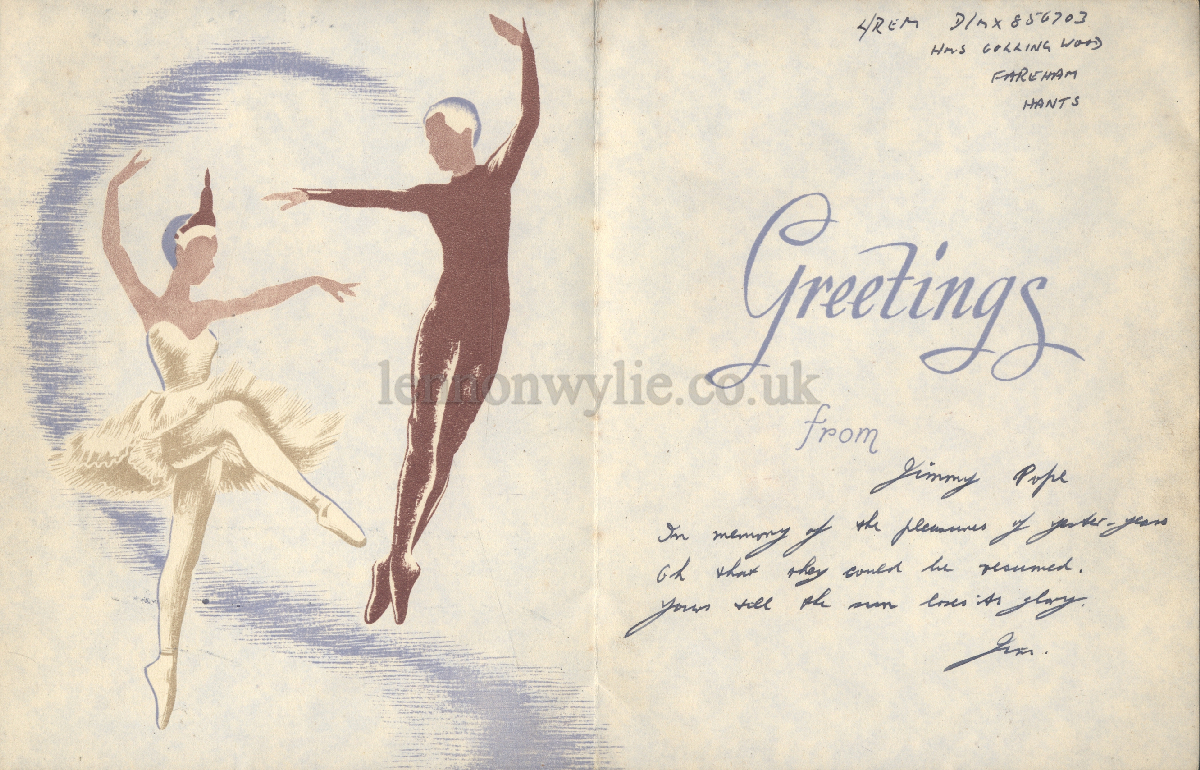 L/REM D/MX 856703
HMS COLLINGWOOD
FAREHAM
HANTS
Greetings
lennonwylie.co.uk
from
Jimmy Pope
In memory of the pleasures of yester-years
Oh that they could be resumed.
Yours till the sun loses its glory.
Jim.